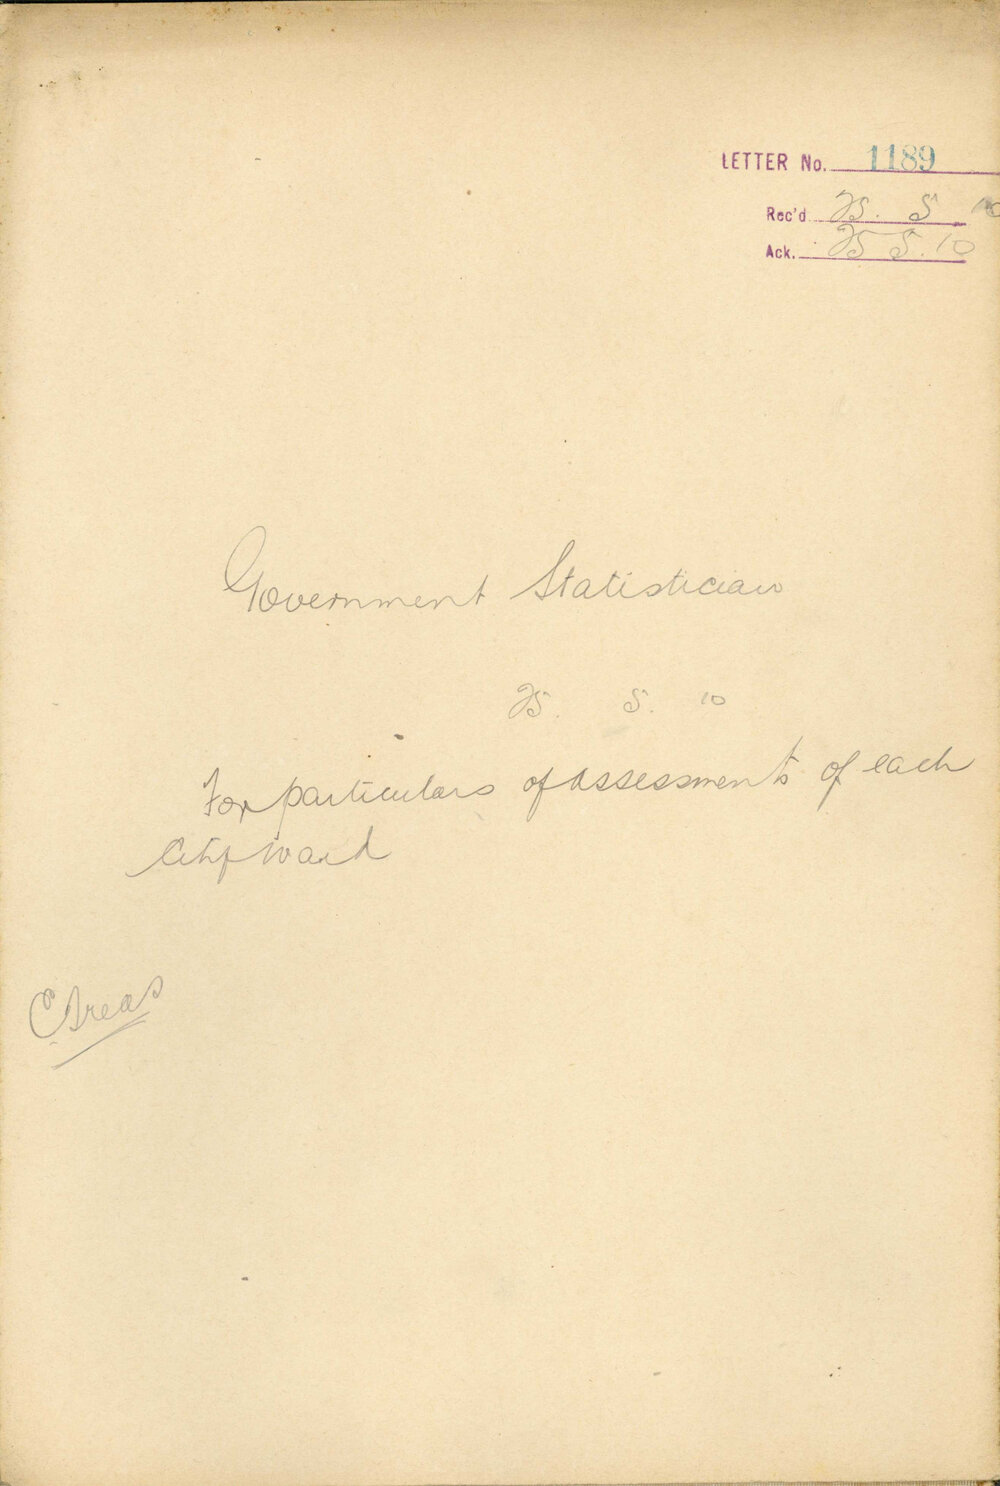 LETTER No. 1189
Rec'd 25. 5. 10
Ack. 25 5. 10
Government Statistician
25. 5. 10
For particulars of assessments of each
City Ward